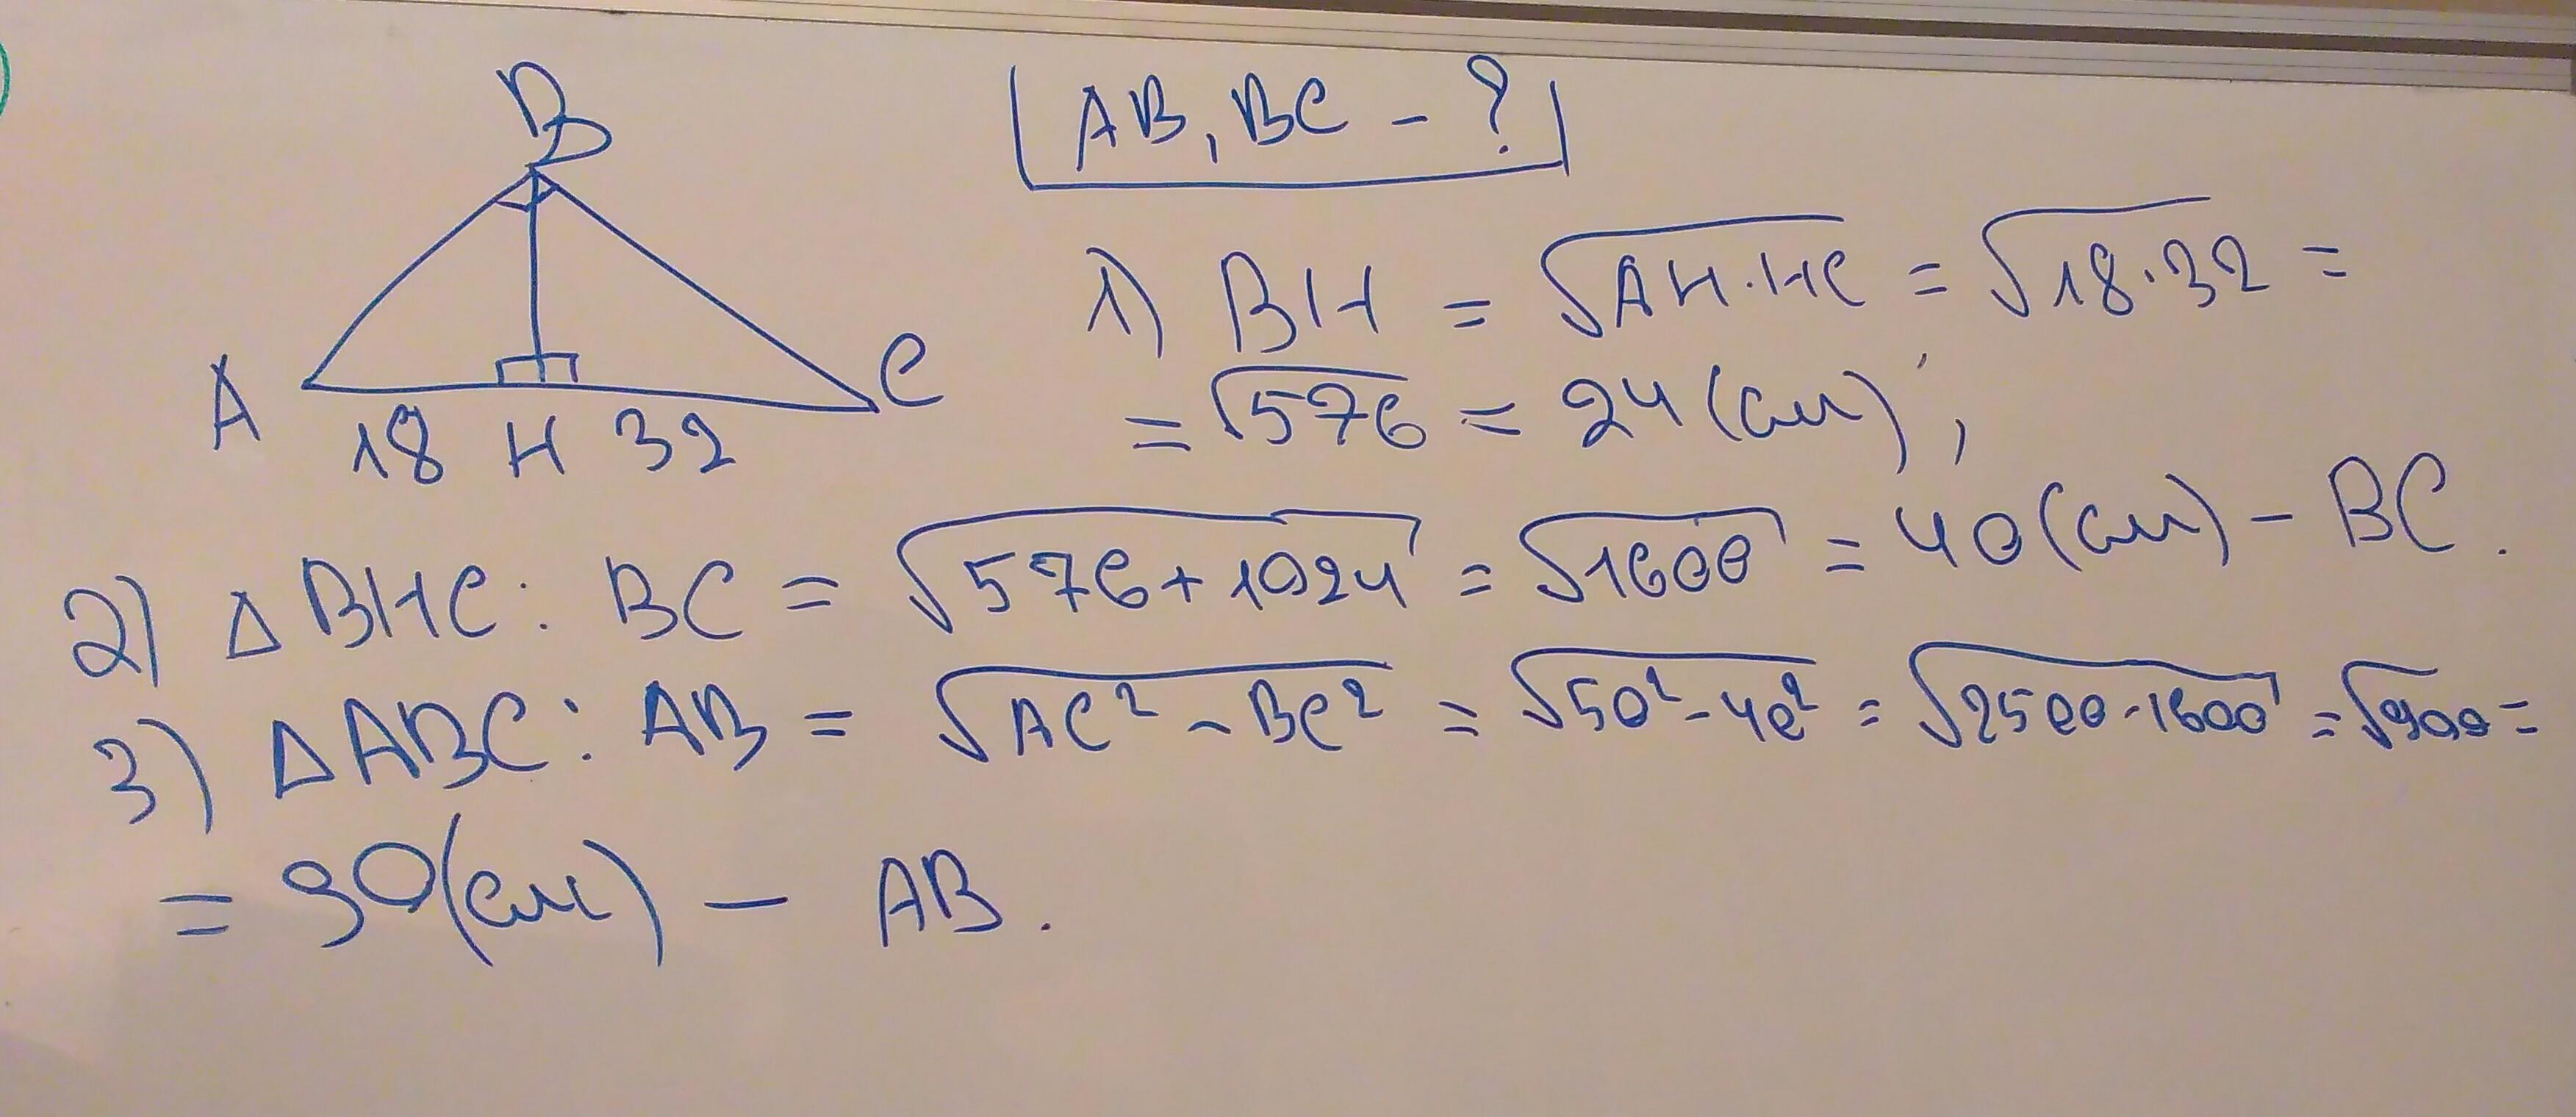 B
A
C
18 H 32
AB, BC - ?
1) BH = √AH·HC = √18·32 =
= √576 = 24 (см);
2) △BHC: BC = √576+1024 = √1600 = 40 (см) - BC.
3) △ABC: AB = √AC² - BC² = √50² - 40² = √2500-1600 = √900 =
= 30 (см) - AB.